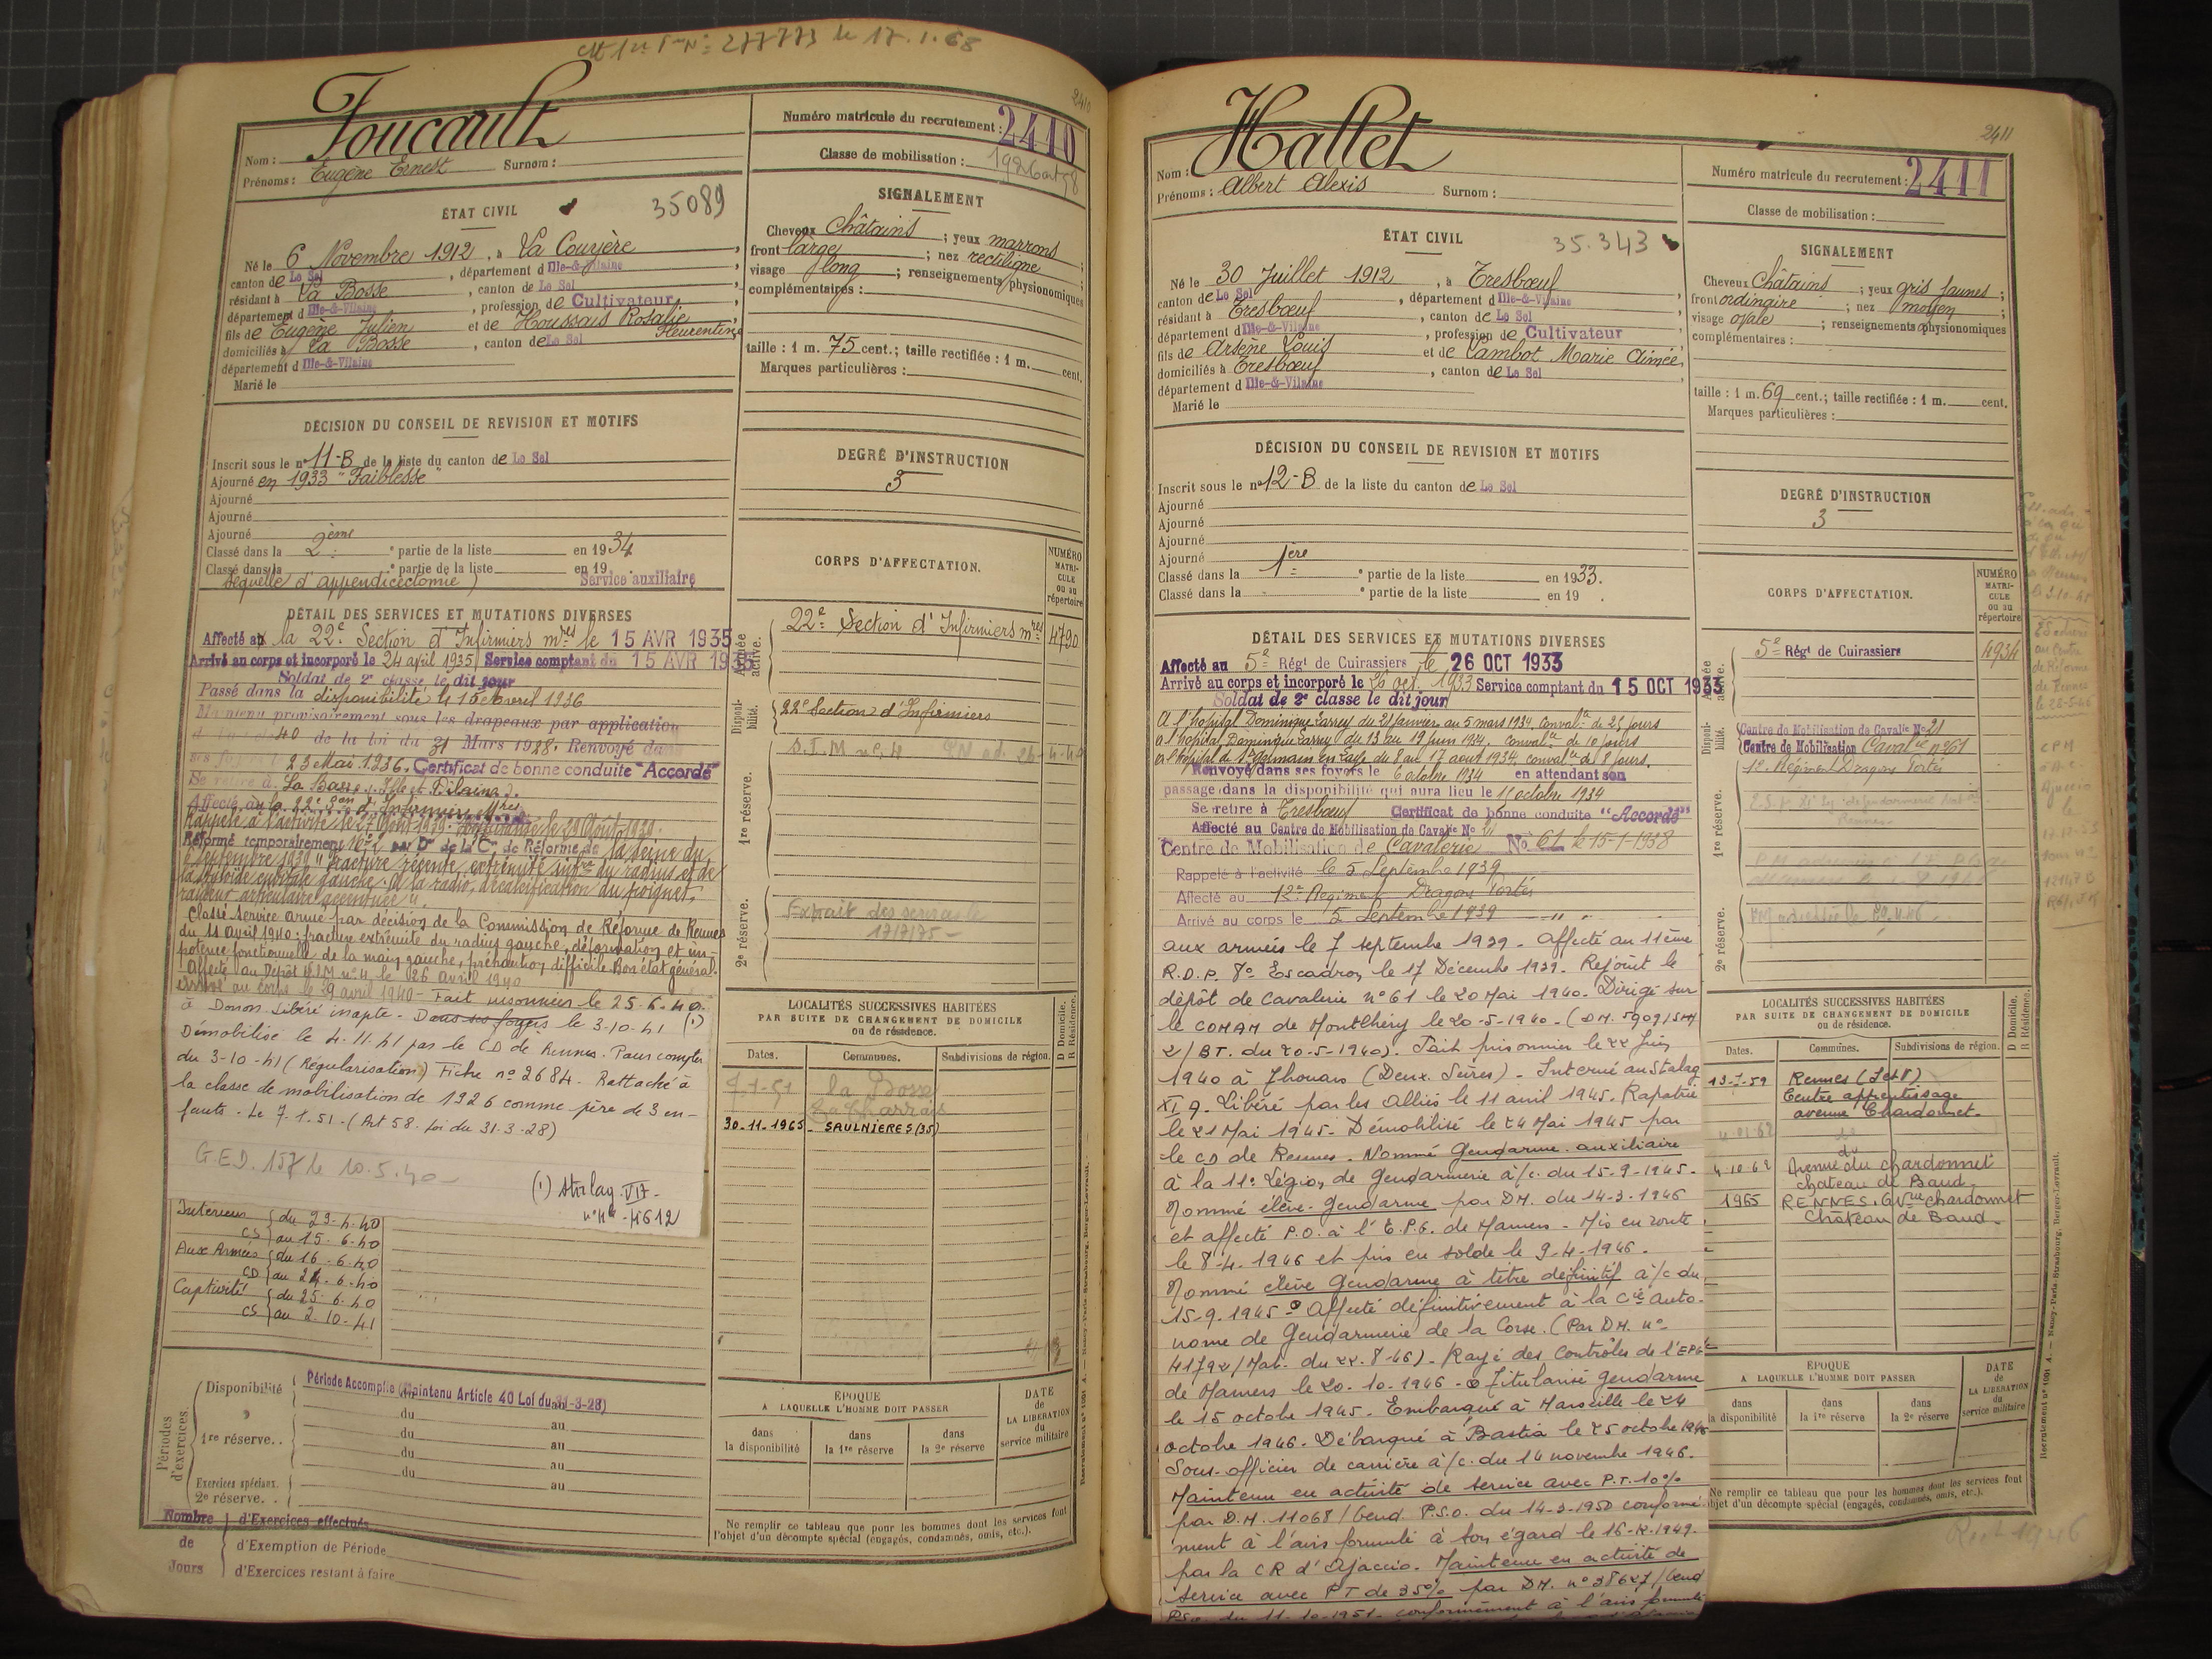 277773 le 17.1.68
2410
Foucault
Nom :
Prénoms : Eugène Ernest Surnom :
Numéro matricule du recrutement : 2410
Classe de mobilisation : 1926 art 58
ÉTAT CIVIL
35089
Né le 6 Novembre 1912, à La Couyère,
canton de Le Sel, département d Ille-&-Vilaine
résidant à La Bosse, canton de Le Sel
département d Ille-&-Vilaine, profession de Cultivateur
fils de Eugène Julien et de Houssais Rosalie Fleurentine
domiciliés à La Bosse, canton de Le Sel
département d Ille-&-Vilaine
Marié le
SIGNALEMENT
Cheveux Châtains ; yeux marrons ;
front large ; nez rectiligne ;
visage long ; renseignements physionomiques
complémentaires :
taille : 1 m. 75 cent. ; taille rectifiée : 1 m. cent.
Marques particulières :
DÉCISION DU CONSEIL DE REVISION ET MOTIFS
Inscrit sous le no 11-B de la liste du canton de Le Sel
Ajourné en 1933 "Faiblesse"
Ajourné
Ajourné
Ajourné
Classé dans la 2ème partie de la liste en 1934
Classé dans la e partie de la liste en 19 .
Séquelle d'appendicectomie) Service auxiliaire
DEGRÉ D'INSTRUCTION
3
DÉTAIL DES SERVICES ET MUTATIONS DIVERSES
Affecté à la 22e Section d'Infirmiers mres le 15 AVR 1935
Arrivé au corps et incorporé le 24 avril 1935 Service comptant du 15 AVR 1935
Soldat de 2e classe le dit jour
Passé dans la disponibilité le 15 avril 1936
Maintenu provisoirement sous les drapeaux par application
40 de la loi du 31 Mars 1928. Renvoyé dans
ses foyers 23 Mai 1936. Certificat de bonne conduite "Accordé"
Se retire à La Bosse, Ille et Vilaine
Affecté à la 22e Son d'Infirmiers Mres
Rappelé à l'activité le 27 Août 1939. le 29 Août 1939.
Réformé temporairement No 2 par Don de la Con de Réforme de la Seine du
Septembre 1939 "fracture récente, extrémité infre du radius et de
gauche. A la radio, décalcification du poignet,
raideur articulaire accentuée".
Classé service armé par décision de la Commission de Réforme de Rennes
du 11 avril 1940 : fracture extrémité du radius gauche, déformation et im-
potence fonctionnelle de la main gauche, préhension difficile. Bon état général.
Affecté au Dépôt S.I.M no 4, le 26 avril 1940
Arrivé au corps le 29 avril 1940 - Fait prisonnier le 25-6-40.
à Donon Libéré inapte - Dans ses foyers le 3-10-41 (1)
Démobilisé le 4.11.41 par le CD de Rennes. Pour compter
du 3-10-41 (Régularisation) Fiche no 2684. Rattaché à
la classe de mobilisation de 1926 comme père de 3 en-
fants. Le 7.1.51. (Art 58. Loi du 31.3.28)
G.E.D. 157 le 10.5.40
(1) Stalag VII
Intérieur { du 29.4.40
CS { au 15.6.40
Aux Armées { du 16.6.40
CD { au 24.6.40
Captivité { du 25.6.40
CS { au 2.10.41
CORPS D'AFFECTATION.
NUMÉRO MATRICULE ou au répertoire
Armée active.
22e Section d'Infirmiers mres 4790
Disponibilité.
22e Section d'Infirmiers
1re réserve.
S.I.M no 4
2e réserve.
Extrait des services le
17/7/75
LOCALITÉS SUCCESSIVES HABITÉES
PAR SUITE DE CHANGEMENT DE DOMICILE
ou de résidence.
D Domicile. R Résidence.
Dates. Communes. Subdivisions de région.
7-1-51 la Bosse
30-11-1965 SAULNIERES (35)
Périodes d'exercices.
Disponibilité Période Accomplie (Maintenu Article 40 Loi du 31-3-28)
1re réserve..
du au
du au
du au
du au
Exercices spéciaux.
2e réserve. . au
Nombre de Jours
d'Exercices effectués
d'Exemption de Période
d'Exercices restant à faire
ÉPOQUE
A LAQUELLE L'HOMME DOIT PASSER
dans la disponibilité
dans la 1re réserve
dans la 2e réserve
DATE de LA LIBÉRATION du service militaire
Ne remplir ce tableau que pour les hommes dont les services font
l'objet d'un décompte spécial (engagés, condamnés, omis, etc.).
2411
Hallet
Nom :
Prénoms : Albert Alexis Surnom :
Numéro matricule du recrutement : 2411
Classe de mobilisation :
ÉTAT CIVIL
35.343
Né le 30 Juillet 1912, à Tresbœuf
canton de Le Sel, département d Ille-&-Vilaine
résidant à Tresbœuf, canton de Le Sel
département d Ille-&-Vilaine, profession de Cultivateur
fils de Arsène Louis et de Lambot Marie Aimée,
domiciliés à Tresbœuf, canton de Le Sel
département d Ille-&-Vilaine
Marié le
SIGNALEMENT
Cheveux Châtains ; yeux gris jaunes ;
front ordinaire ; nez moyen ;
visage ovale ; renseignements physionomiques
complémentaires :
taille : 1 m. 69 cent. ; taille rectifiée : 1 m. cent.
Marques particulières :
DÉCISION DU CONSEIL DE REVISION ET MOTIFS
Inscrit sous le no 12-B de la liste du canton de Le Sel
Ajourné
Ajourné
Ajourné
Ajourné
Classé dans la 1ère partie de la liste en 1933.
Classé dans la e partie de la liste en 19 .
DEGRÉ D'INSTRUCTION
3
DÉTAIL DES SERVICES ET MUTATIONS DIVERSES
Affecté au 5e Régt de Cuirassiers le 26 OCT 1933
Arrivé au corps et incorporé le 26 oct. 1933 Service comptant du 15 OCT 1933
Soldat de 2e classe le dit jour
A l'hôpital Dominique Larrey du 21 Janvier au 5 mars 1934. Convalce de 25 jours
à l'hôpital Dominique Larrey du 13 au 19 Juin 1934. Convalce de 10 jours
à l'hôpital de St Germain en Laye du 8 au 17 août 1934, convalce de 8 jours.
Renvoyé dans ses foyers le 6 octobre 1934 en attendant son
passage dans la disponibilité qui aura lieu le 15 octobre 1934
Se retire à Tresbœuf Certificat de bonne conduite "Accordé"
Affecté au Centre de Mobilisation de Cavalie No 21
Centre de Mobilisation de Cavalerie No 61 le 15-1-1938
Rappelé à l'activité le 5 Septembre 1939
Affecté au 12e Régiment Dragons Portés
Arrivé au corps le 5 Septembre 1939
aux armées le 7 septembre 1939 - Affecté au 11ème
R.D.P. 8e Escadron le 17 Décembre 1939. Rejoint le
dépôt de Cavalerie no 61 le 20 Mai 1940. Dirigé sur
le COMAM de Montlhéry le 20-5-1940. (DM. 5909/SM
2/BT. du 20-5-1940). Fait prisonnier le 22 Juin
1940 à Thouars (Deux. Sèvres) - Interné au Stalag
XI 9. Libéré par les Alliés le 11 avril 1945. Rapatrié
le 21 Mai 1945. Démobilisé le 24 Mai 1945 par
le CD de Rennes. Nommé Gendarme auxiliaire
à la 11e Légion de Gendarmerie à/c. du 15-9-1945.
Nommé élève-Gendarme par DM. du 14-3-1946
et affecté P.O. à l'E.P.G. de Mamers - Mis en route
le 8-4-1946 et pris en solde le 9-4-1946.
Nommé élève Gendarme à titre définitif à/c du
15-9-1945. Affecté définitivement à la Cie Auto-
nome de Gendarmerie de la Corse. (Par DM. no
41792/Mat. du 22.8.46). Rayé des Contrôles de l'EPG
de Mamers le 20.10.1946. Titularisé gendarme
le 15 octobre 1945. Embarqué à Marseille le 24
octobre 1946. Débarqué à Bastia le 25 octobre 1946
Sous-officier de carrière à/c. du 14 novembre 1946.
Maintenu en activité de service avec P.T. 10%
par D.M. 11068/Gend. P.S.O. du 14-3-1950 conformé-
ment à l'avis formulé à son égard le 16-12-1949.
par la CR d'Ajaccio. Maintenu en activité de
service avec PT de 35% par DM. no 38627/Gend
P.S.O. du 11-10-1951. conformément à l'avis formulé
CORPS D'AFFECTATION.
NUMÉRO MATRICULE ou au répertoire
Armée active.
5e Régt de Cuirassiers 4934
Disponibilité.
Centre de Mobilisation de Cavalie No 21
Centre de Mobilisation Cavalie no 61
1re réserve.
12e Régiment Dragons Portés
2e réserve.
LOCALITÉS SUCCESSIVES HABITÉES
PAR SUITE DE CHANGEMENT DE DOMICILE
ou de résidence.
D Domicile. R Résidence.
Dates. Communes. Subdivisions de région.
13-7-59 Rennes (I et V)
Centre apprentissage
avenue Chardonnet
4-10-62 Avenue du chardonnet
château de Baud
1965 RENNES. 6 Avnue Chardonnet
Château de Baud
ÉPOQUE
A LAQUELLE L'HOMME DOIT PASSER
dans la disponibilité
dans la 1re réserve
dans la 2e réserve
DATE de LA LIBÉRATION du service militaire
Ne remplir ce tableau que pour les hommes dont les services font
l'objet d'un décompte spécial (engagés, condamnés, omis, etc.).
1946